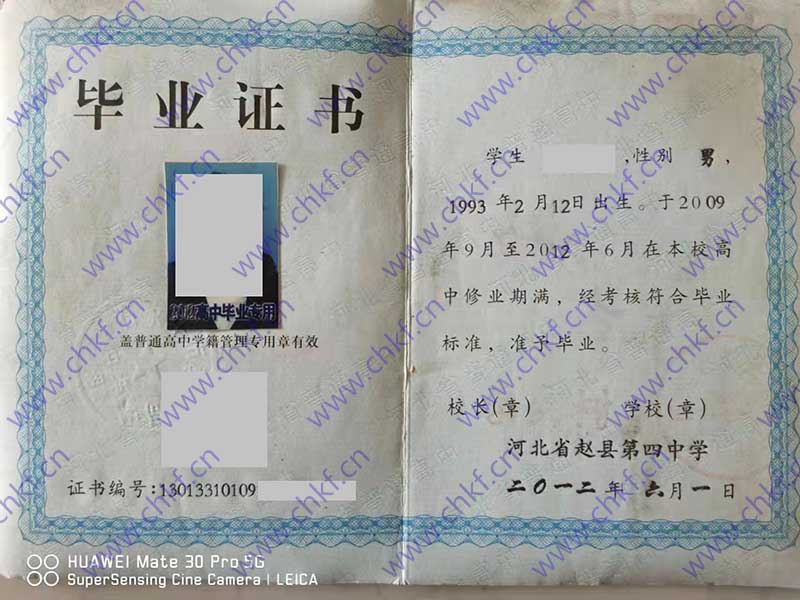 毕业证书
2012高中毕业专用
盖普通高中学籍管理专用章有效
证书编号:13013310109
学生 ,性别 男,
1993 年2 月12日出生。于2009
年9月至2012 年6月在本校高
中修业期满，经考核符合毕业
标准，准予毕业。
校长(章) 学校(章)
河北省赵县第四中学
二〇一二 年 六月 一 日
www.chkf.cn
HUAWEI Mate 30 Pro 5G
SuperSensing Cine Camera | LEICA